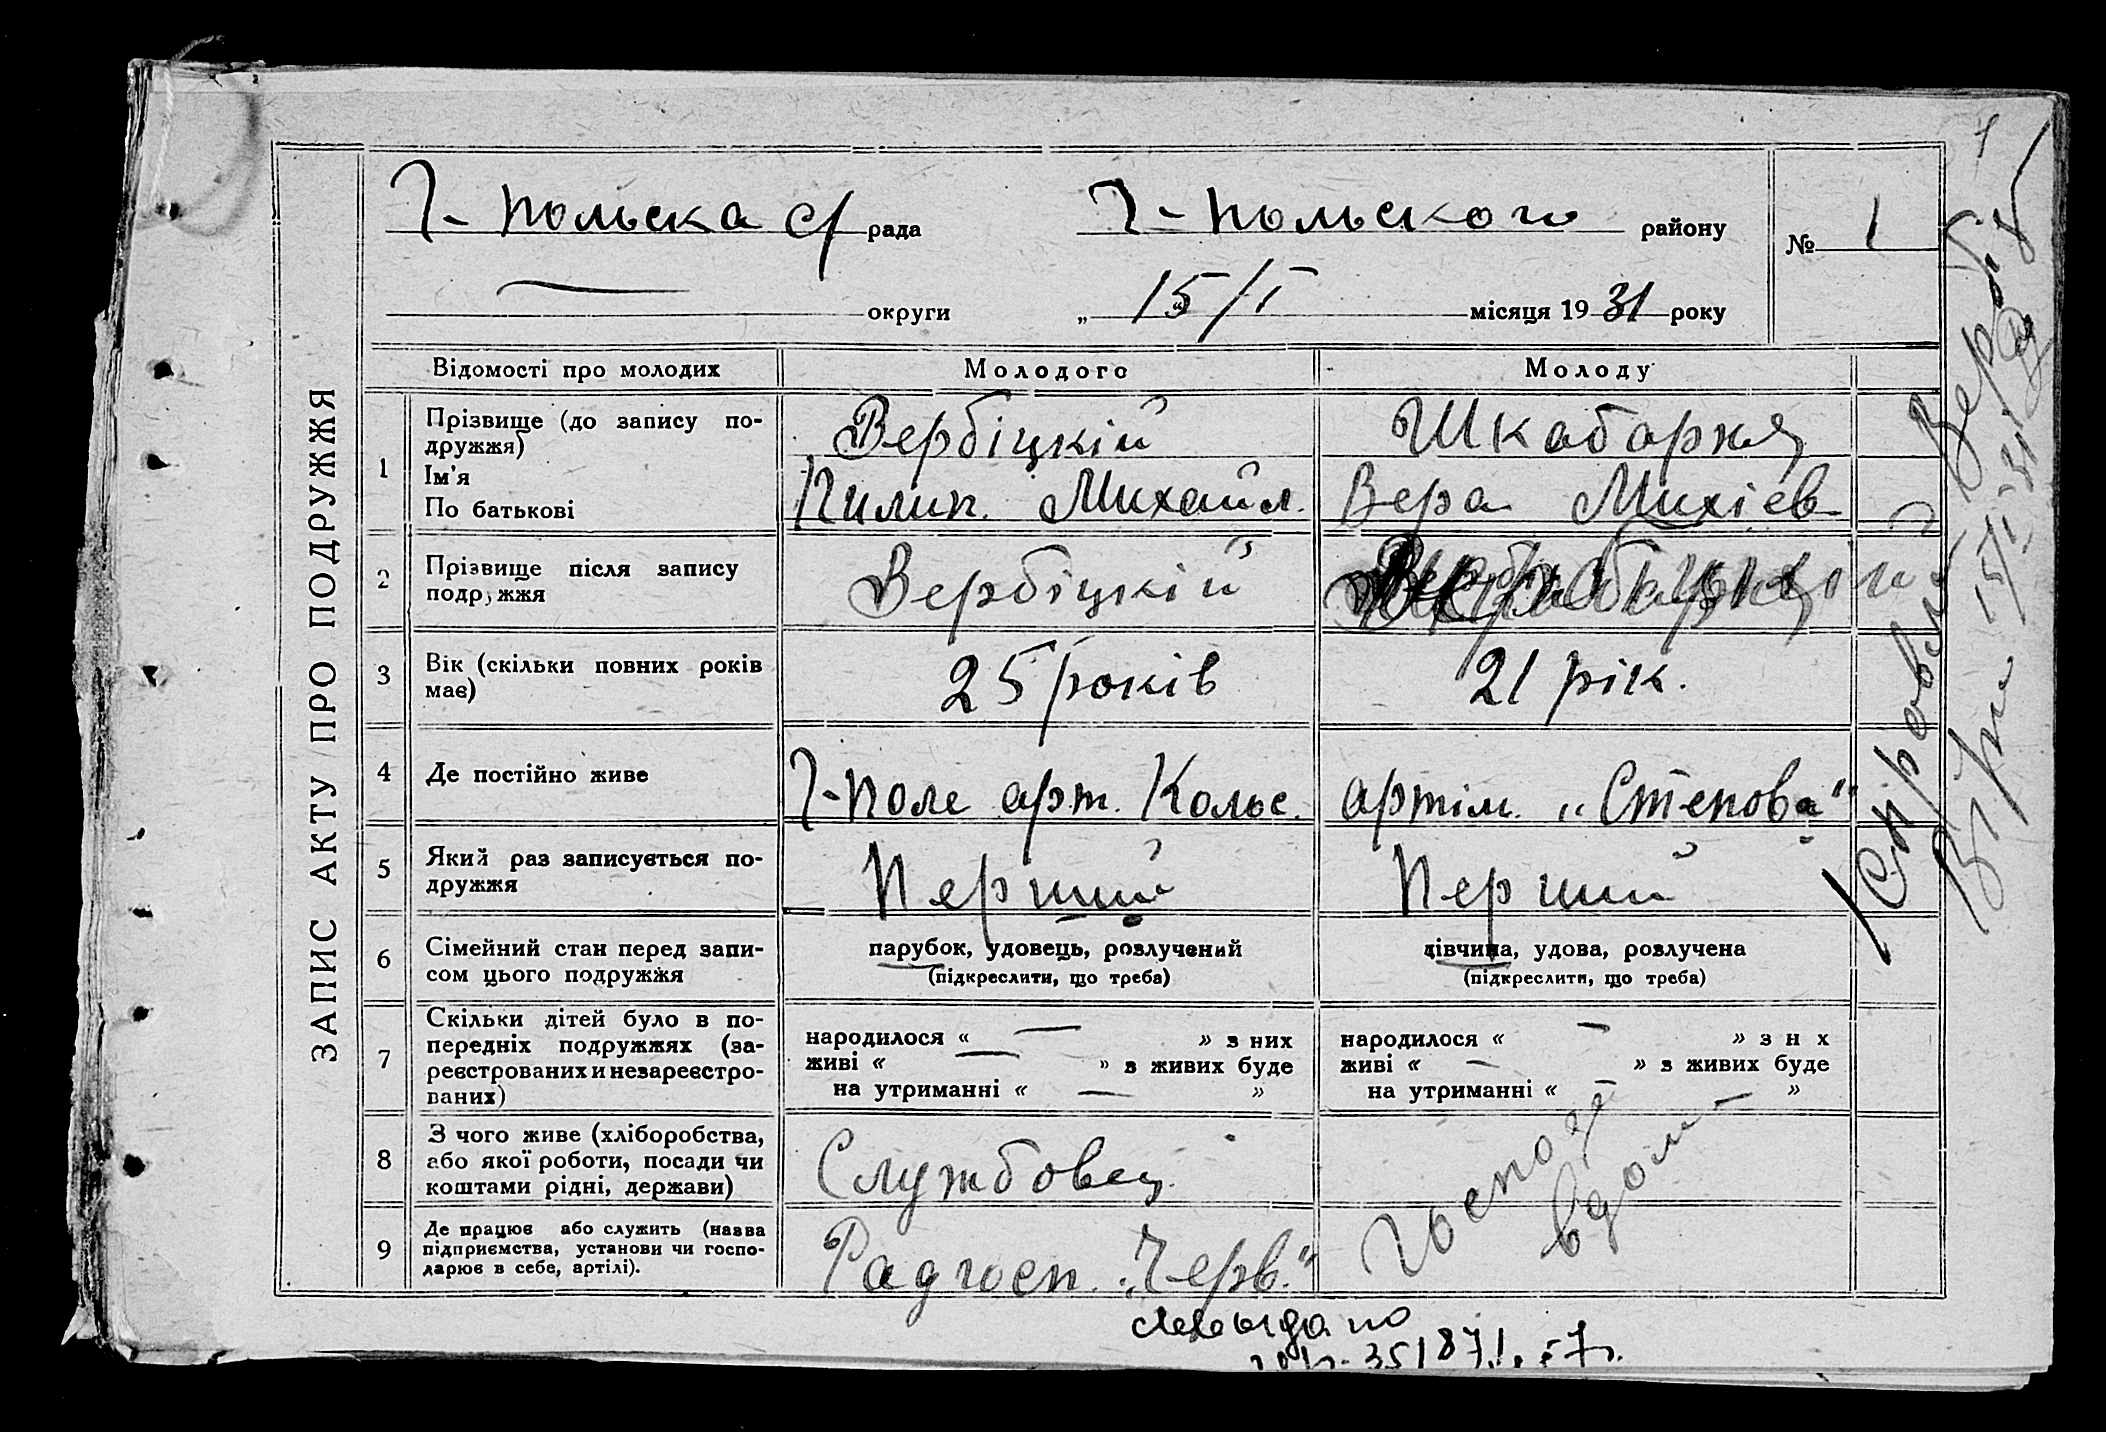 1
ЗАПИС АКТУ ПРО ПОДРУЖЖЯ
Г-Польска с/ рада Г-Польского району № 1
округи „ 15/I місяця 1931 року
Відомості про молодих Молодого Молоду
1 Прізвище (до запису по-
дружжя) Вербіцкій Шкабарня
Ім'я
По батькові Пилип. Михайл. Вера Михіев
2 Прізвище після запису
подружжя Вербіцкій
3 Вік (скільки повних років
має) 25 років 21 рік.
4 Де постійно живе Г-Поле арт. Кольс. артіль. „Степова"
5 Який раз записується по-
дружжя Перший Перший
6 Сімейний стан перед запи-
сом цього подружжя
парубок, удовець, розлучений
(підкреслити, що треба)
дівчина, удова, розлучена
(підкреслити, що треба)
7 Скільки дітей було в по-
передніх подружжях (за-
реєстрованих и незареєстро-
ваних)
народилося « — » з них
живі « — » з живих буде
на утриманні « — »
народилося « — » з н х
живі « — » з живих буде
на утриманні « — »
8 З чого живе (хліборобства,
або якої роботи, посади чи
коштами рідні, держави) Службовец.
9 Де працює або служить (назва
підприємства, установи чи госпо-
дарює в себе, артілі). Радгосп. „Черв."
Господ
вдома